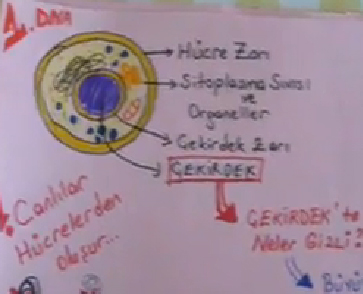 Hücre Zarı
Sitoplazma Sıvısı
ve
Organeller
Çekirdek Zarı
ÇEKİRDEK
Canlılar
Hücrelerden
oluşur...
ÇEKİRDEK'te
Neler Gizli?